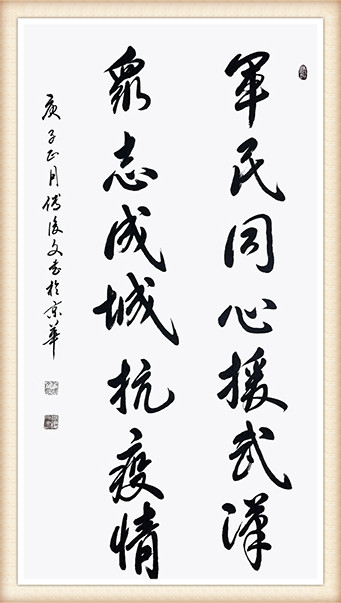 軍民同心援武漢
眾志成城抗疫情
庚子正月傅俊文書於京華